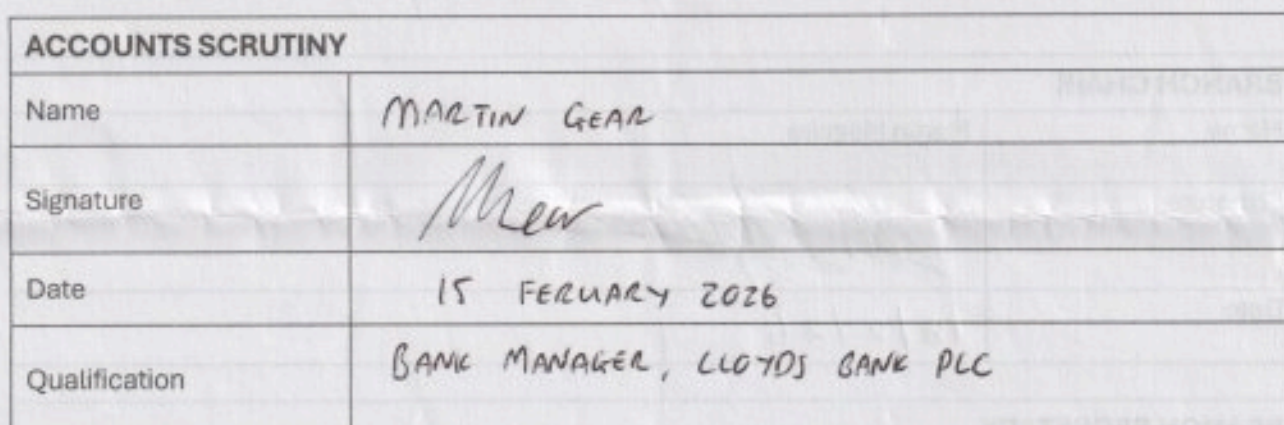 ACCOUNTS SCRUTINY
Name MARTIN GEAR
Signature
Date 15 FERUARY 2026
Qualification BANK MANAGER, LLOYDS BANK PLC